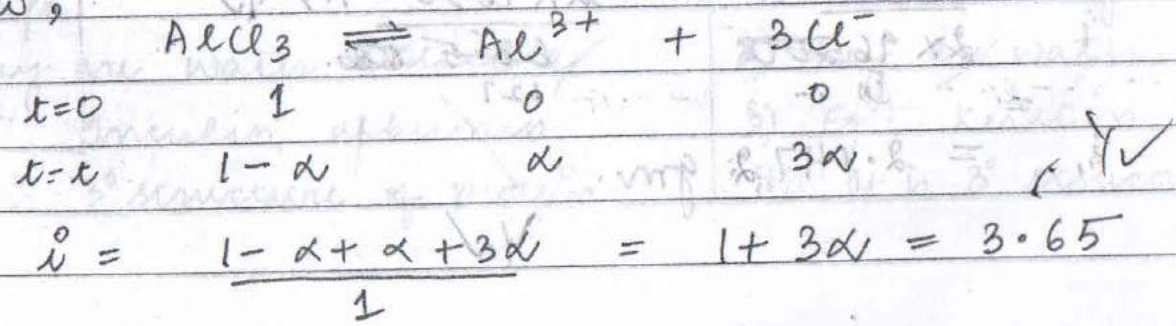 AlCl3 ⇌ Al3+ + 3Cl-
t=0 1 0 0
t=t 1-α α 3α
i = 1-α+α+3α / 1 = 1+3α = 3.65